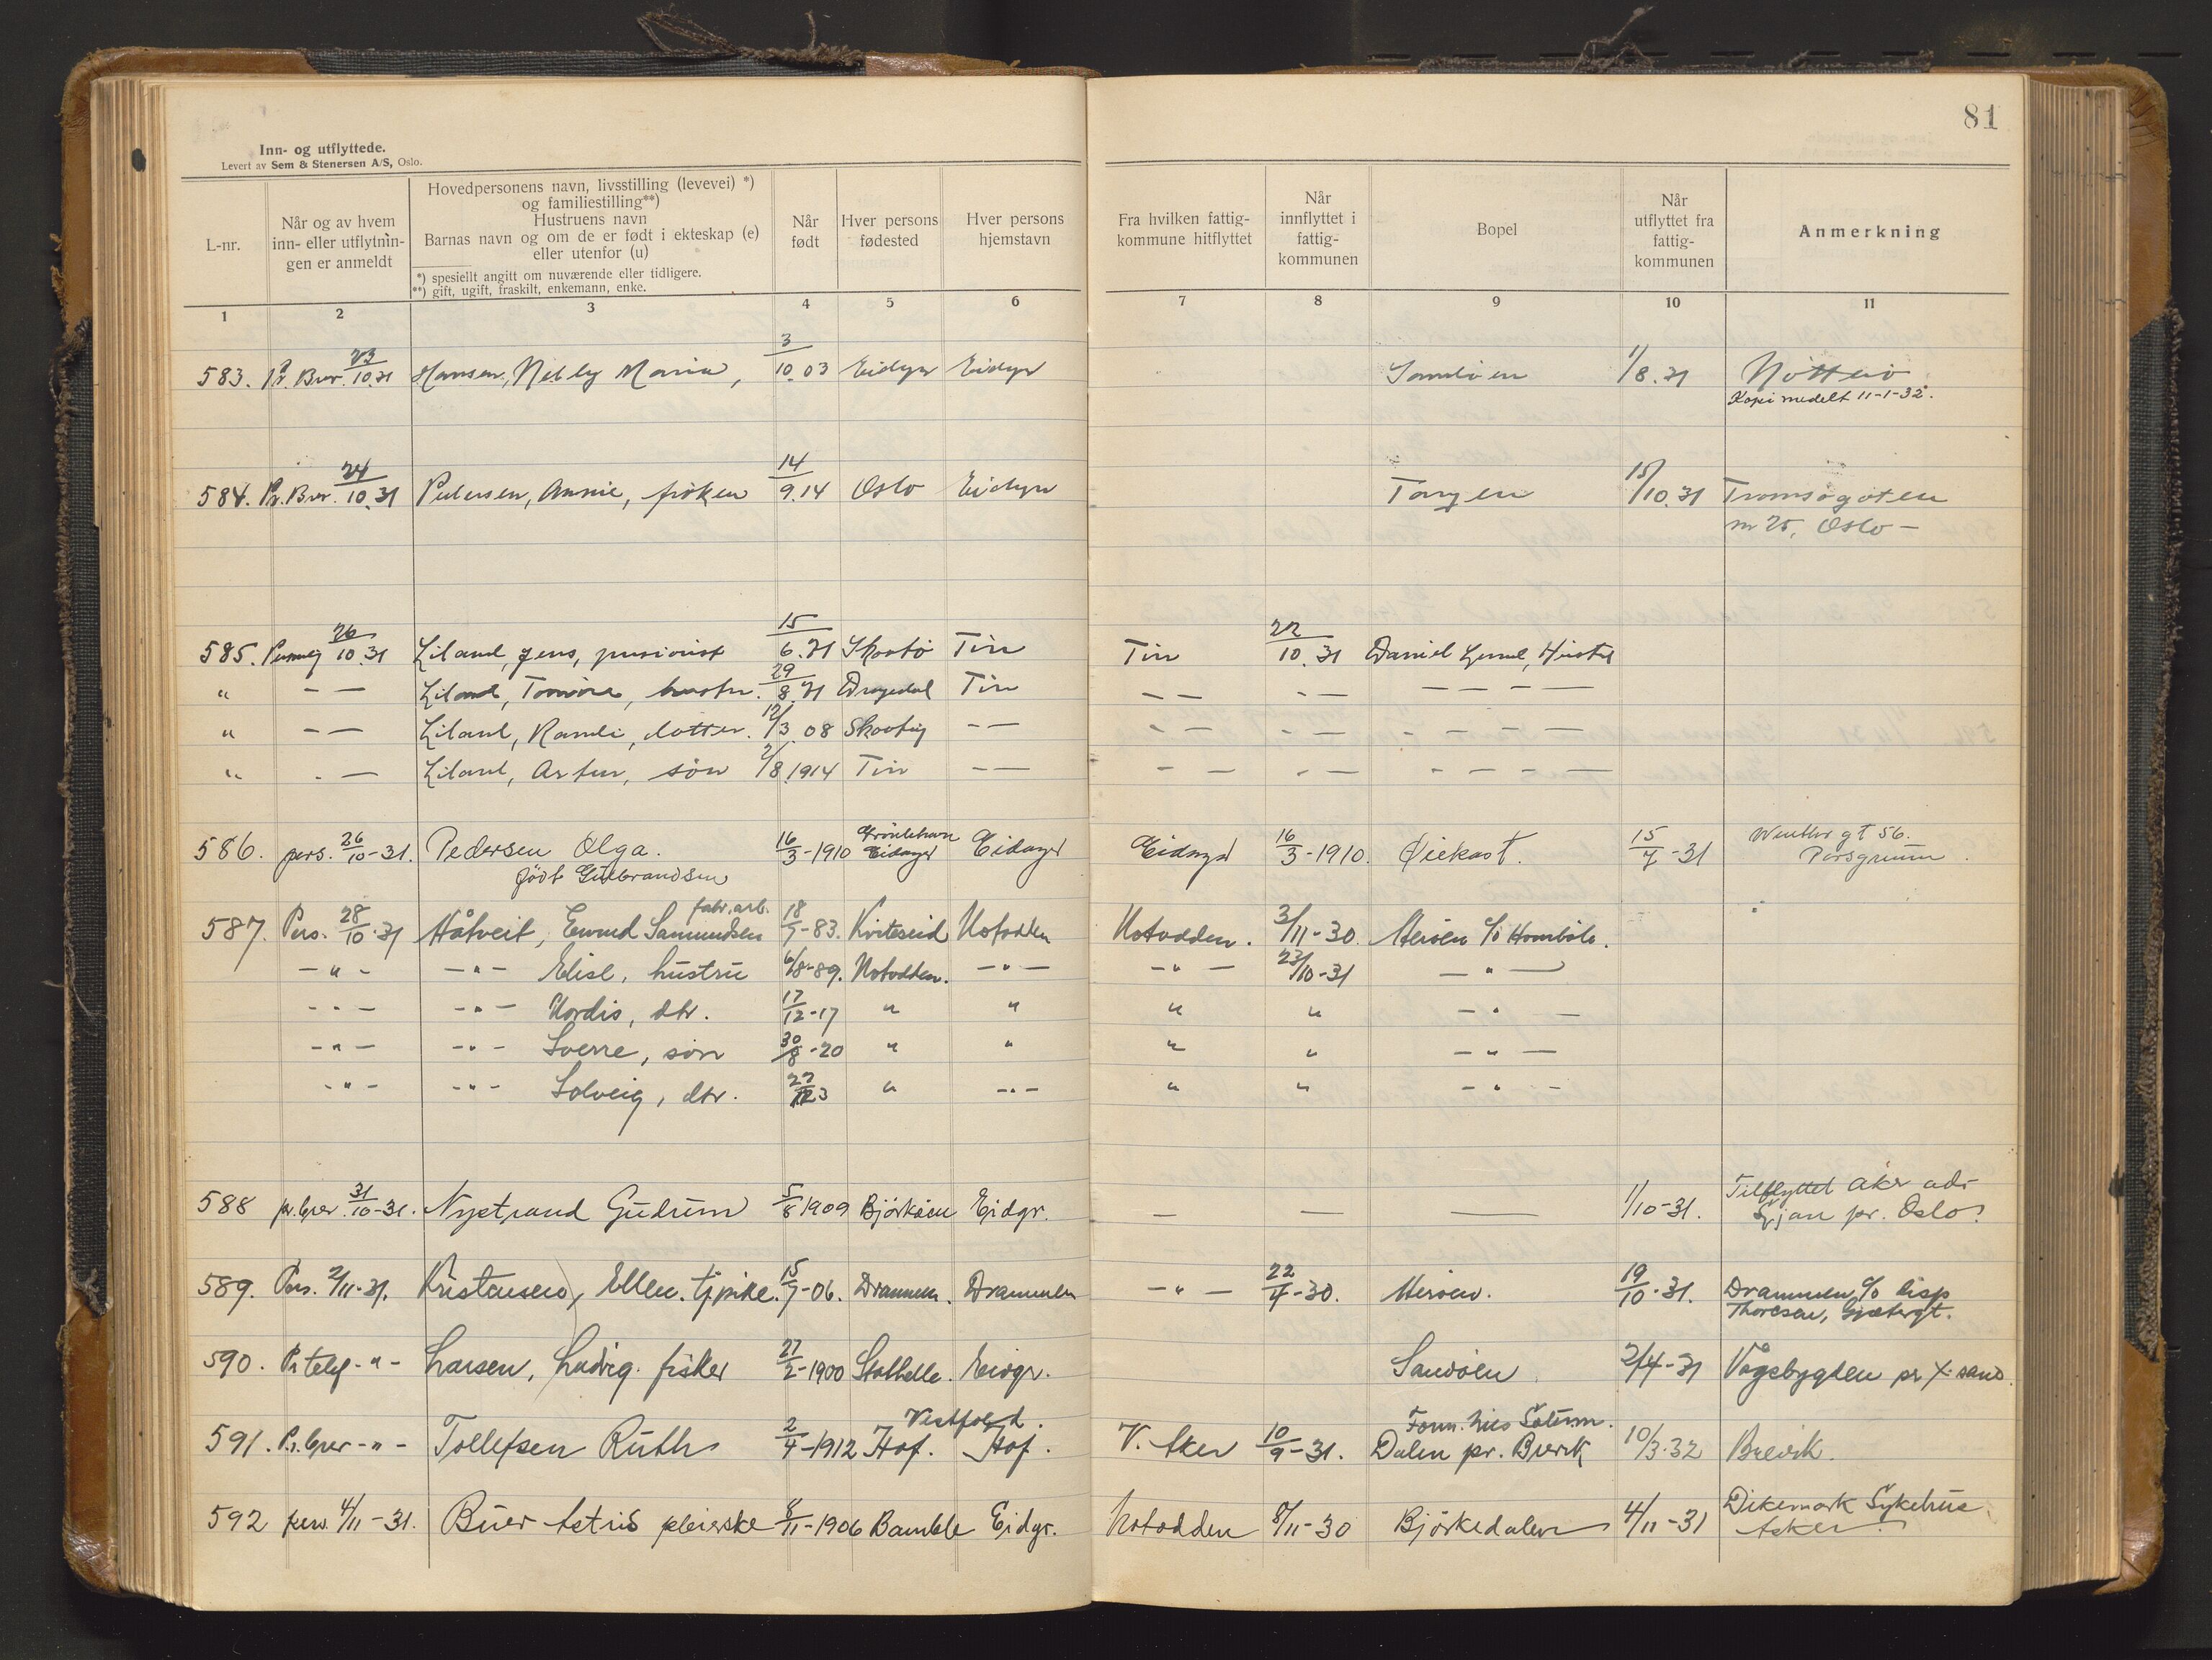 81
Inn- og utflyttede.
Levert av Sem & Stenersen A/S, Oslo.
L-nr.
Når og av hvem
inn- eller utflytnin-
gen er anmeldt
Hovedpersonens navn, livsstilling (levevei) *)
og familiestilling**)
Hustruens navn
Barnas navn og om de er født i ekteskap (e)
eller utenfor (u)
*) spesielt angitt om nuværende eller tidligere.
**) gift, ugift, fraskilt, enkemann, enke.
Når
født
Hver persons
fødested
Hver persons
hjemstavn
Fra hvilken fattig-
kommune hitflyttet
Når
innflyttet i
fattig-
kommunen
Bopel
Når
utflyttet fra
fattig-
kommunen
Anmerkning
1 2 3 4 5 6 7 8 9 10 11
583. Pr. Brev 23/10.31 Hansen, Nelly Marie, 3/10.03 Eidgr Eidgr 1/8.31 Nøtterö
Kopi medelt 11-1-32.
584. Pr. Brev. 24/10.31 Pedersen, Annie, frøken 14/9.14 Oslo Eidgr Tangen 15/10.31 Tromsøgaten
nr 25, Oslo -
585. 26/10.31 Liland, Jens, pensionist 15/6.71 Skaatø Tin Tin 22/10.31 Daniel
" - - Liland, hustru. 29/8.71 Drangedal Tin - - - - - - - -
" - - Liland, datter. 12/3.08 - - - - - - - - - - -
" - - Liland, Artur, søn 2/8.1914 Tin - - - - - - - - - - -
586. pers. 26/10-31. Pedersen Olga. 16/3-1910 Eidanger Eidanger Eidanger 16/3-1910. Øiekast. 15/7-31 Winther gt 56.
født Gulbrandsen Porsgrunn
fabr. arb.
587. Pers. 28/10-31 Håtveit, Samundsen 18/7-83. Kviteseid Notodden Notodden. 3/11-30. Herøen c/o
- " - - " - Elise, hustru 6/8-89. Notodden. - " - - " - 23/10-31 - " -
- " - - " - Nordis, dtr. 17/12-17 " " " " - " -
- " - - " - Sverre, søn 30/8-20 " " " " - " -
- " - - " - Solveig, dtr. " - " - " " - " -
588 pr. brev. 31/10-31. Nystrand Gudrun 5/8 1909 Björkøen Eidgr. — — — 1/10-31. Tilflyttet Aker adr
Ljan pr. Oslo.
589. Pers. 2/11-31. Kristensen, Ellen. tj.pike. 15/7-06. Drammen. Drammen - " - 22/4-30. Herøen. 19/10-31. Drammen, c/o
Thoresen,
590. Pr telef - " - Larsen, Ludvig. fisker 27/2-1900 Stathelle. Eidgr. Sandøen 2/4-31 Vågsbygden pr X.sand.
591. Pr. brev - " - Tollefsen Ruth 2/4-1912 Hof. Vestfold. Hof. V. Aker 10/9-31. Dalen pr. Brevik 10/3-32 Brevik.
592 pers. 4/11-31. Buer Astrid pleierske 8/11-1906 Bamble Eidgr. Notodden 8/11-30 Björkedalen 4/11-31 Dikemark Sykehus
Asker.